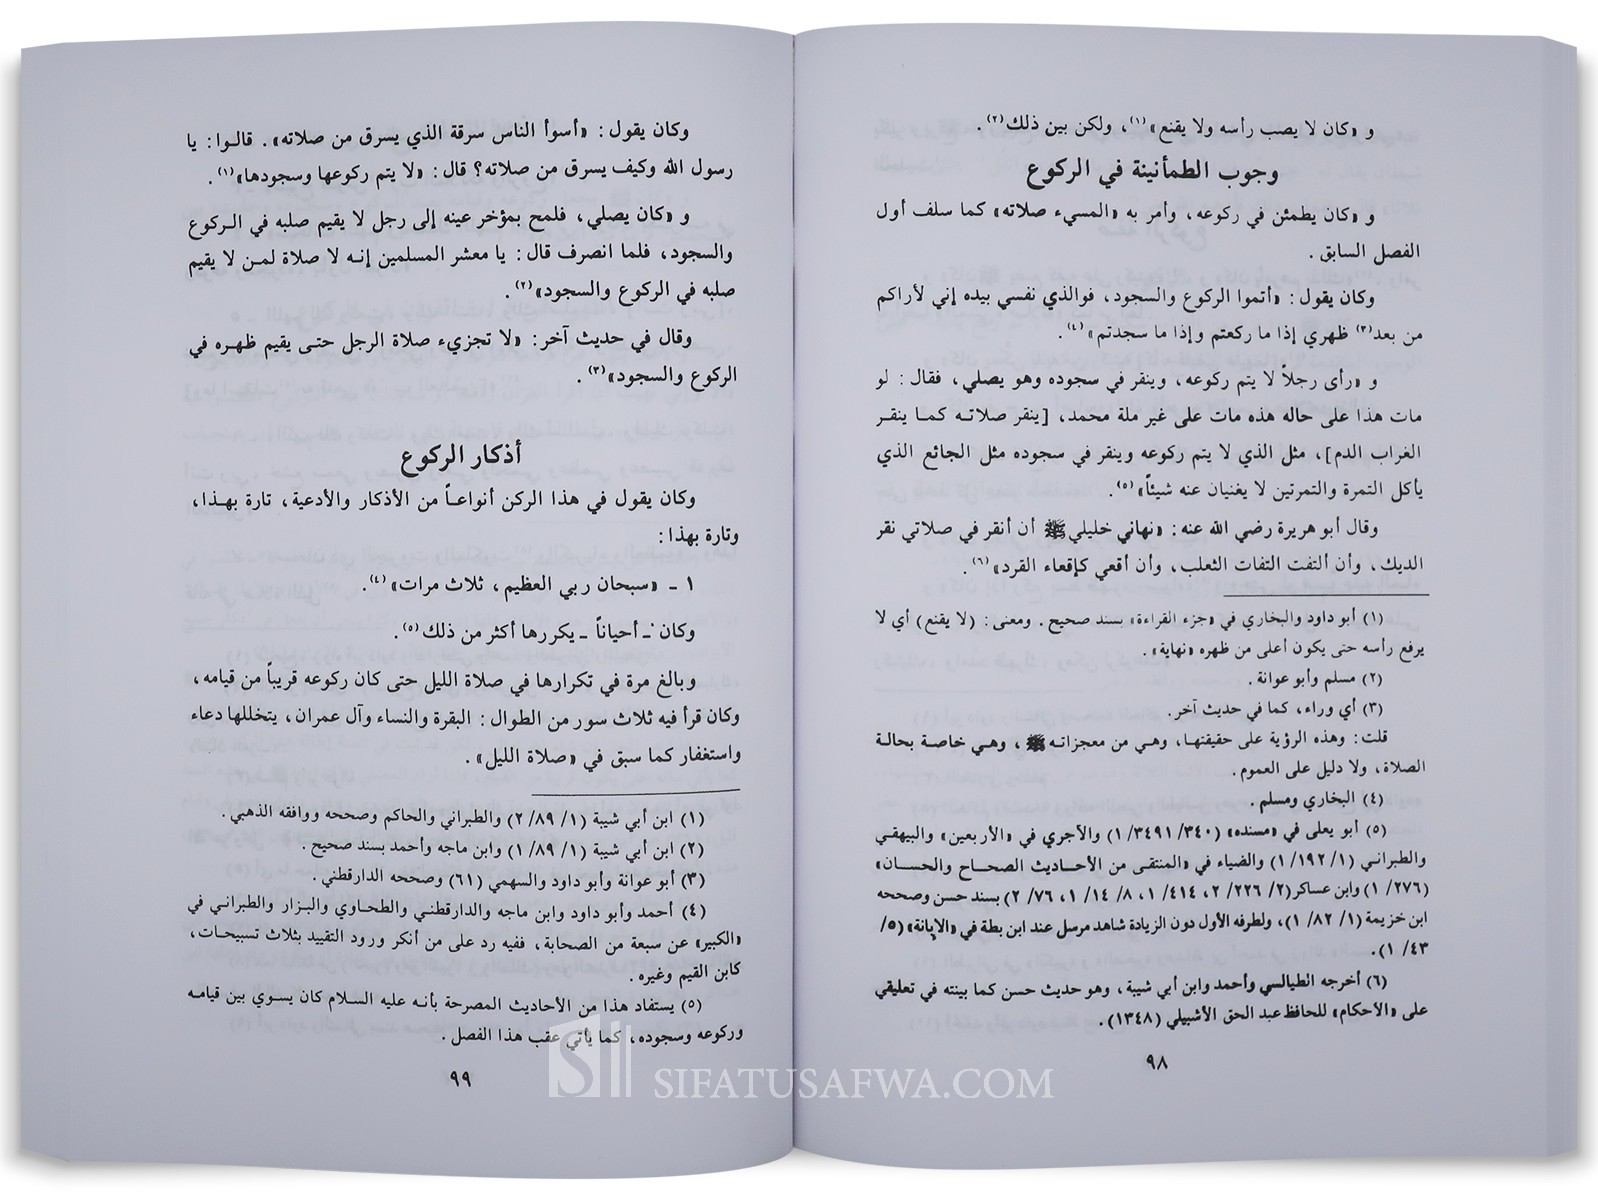 و «كان لا يصب رأسه ولا يقنع»(١)، ولكن بين ذلك(٢).
وجوب الطمأنينة في الركوع
و «كان يطمئن في ركوعه، وأمر به «المسيء صلاته» كما سلف أول
الفصل السابق.
وكان يقول: «أتموا الركوع والسجود، فوالذي نفسي بيده إني لأراكم
من بعد(٣) ظهري إذا ما ركعتم وإذا ما سجدتم»(٤).
و «رأى رجلاً لا يتم ركوعه، وينقر في سجوده وهو يصلي، فقال: لو
مات هذا على حاله هذه مات على غير ملة محمد، [ينقر صلاته كما ينقر
الغراب الدم]، مثل الذي لا يتم ركوعه وينقر في سجوده مثل الجائع الذي
يأكل التمرة والتمرتين لا يغنيان عنه شيئاً»(٥).
وقال أبو هريرة رضي الله عنه: «نهاني خليلي ﷺ أن أنقر في صلاتي نقر
الديك، وأن ألتفت التفات الثعلب، وأن أقعي كإقعاء القرد»(٦).
(١) أبو داود والبخاري في «جزء القراءة» بسند صحيح. ومعنى: (لا يقنع) أي لا
يرفع رأسه حتى يكون أعلى من ظهره «نهاية».
(٢) مسلم وأبو عوانة.
(٣) أي وراء، كما في حديث آخر.
قلت: وهذه الرؤية على حقيقتها، وهي من معجزاته ﷺ، وهي خاصة بحالة
الصلاة، ولا دليل على العموم.
(٤) البخاري ومسلم.
(٥) أبو يعلى في «مسنده» (٣٤٠/ ٣٤٩١/ ١) والآجري في «الأربعين» والبيهقي
والطبراني (١/ ١٩٢/ ١) والضياء في «المنتقى من الأحاديث الصحاح والحسان»
(٢٧٦/ ١) وابن عساكر (٢/ ٢٢٦/ ٢، ٤١٤/ ١، ٨/ ١٤/ ١، ٧٦/ ٢) بسند حسن وصححه
ابن خزيمة (١/ ٨٢/ ١)، ولطرفه الأول دون الزيادة شاهد مرسل عند ابن بطة في «الإبانة» (٥/
٤٣/ ١).
(٦) أخرجه الطيالسي وأحمد وابن أبي شيبة، وهو حديث حسن كما بينته في تعليقي
على «الأحكام» للحافظ عبد الحق الأشبيلي (١٣٤٨).
٩٨
وكان يقول: «أسوأ الناس سرقة الذي يسرق من صلاته». قالوا: يا
رسول الله وكيف يسرق من صلاته؟ قال: «لا يتم ركوعها وسجودها»(١).
و «كان يصلي، فلمح بمؤخر عينه إلى رجل لا يقيم صلبه في الركوع
والسجود، فلما انصرف قال: يا معشر المسلمين إنه لا صلاة لمن لا يقيم
صلبه في الركوع والسجود»(٢).
وقال في حديث آخر: «لا تجزيء صلاة الرجل حتى يقيم ظهره في
الركوع والسجود»(٣).
أذكار الركوع
وكان يقول في هذا الركن أنواعاً من الأذكار والأدعية، تارة بهذا،
وتارة بهذا:
١ ـ «سبحان ربي العظيم، ثلاث مرات»(٤).
وكان ـ أحياناً ـ يكررها أكثر من ذلك(٥).
وبالغ مرة في تكرارها في صلاة الليل حتى كان ركوعه قريباً من قيامه،
وكان قرأ فيه ثلاث سور من الطوال: البقرة والنساء وآل عمران، يتخللها دعاء
واستغفار كما سبق في «صلاة الليل».
(١) ابن أبي شيبة (١/ ٨٩/ ٢) والطبراني والحاكم وصححه ووافقه الذهبي.
(٢) ابن أبي شيبة (١/ ٨٩/ ١) وابن ماجه وأحمد بسند صحيح.
(٣) أبو عوانة وأبو داود والسهمي (٦١) وصححه الدارقطني.
(٤) أحمد وأبو داود وابن ماجه والدارقطني والطحاوي والبزار والطبراني في
«الكبير» عن سبعة من الصحابة، ففيه رد على من أنكر ورود التقييد بثلاث تسبيحات،
كابن القيم وغيره.
(٥) يستفاد هذا من الأحاديث المصرحة بأنه عليه السلام كان يسوي بين قيامه
وركوعه وسجوده، كما يأتي عقب هذا الفصل.
٩٩
SIFATUSAFWA.COM